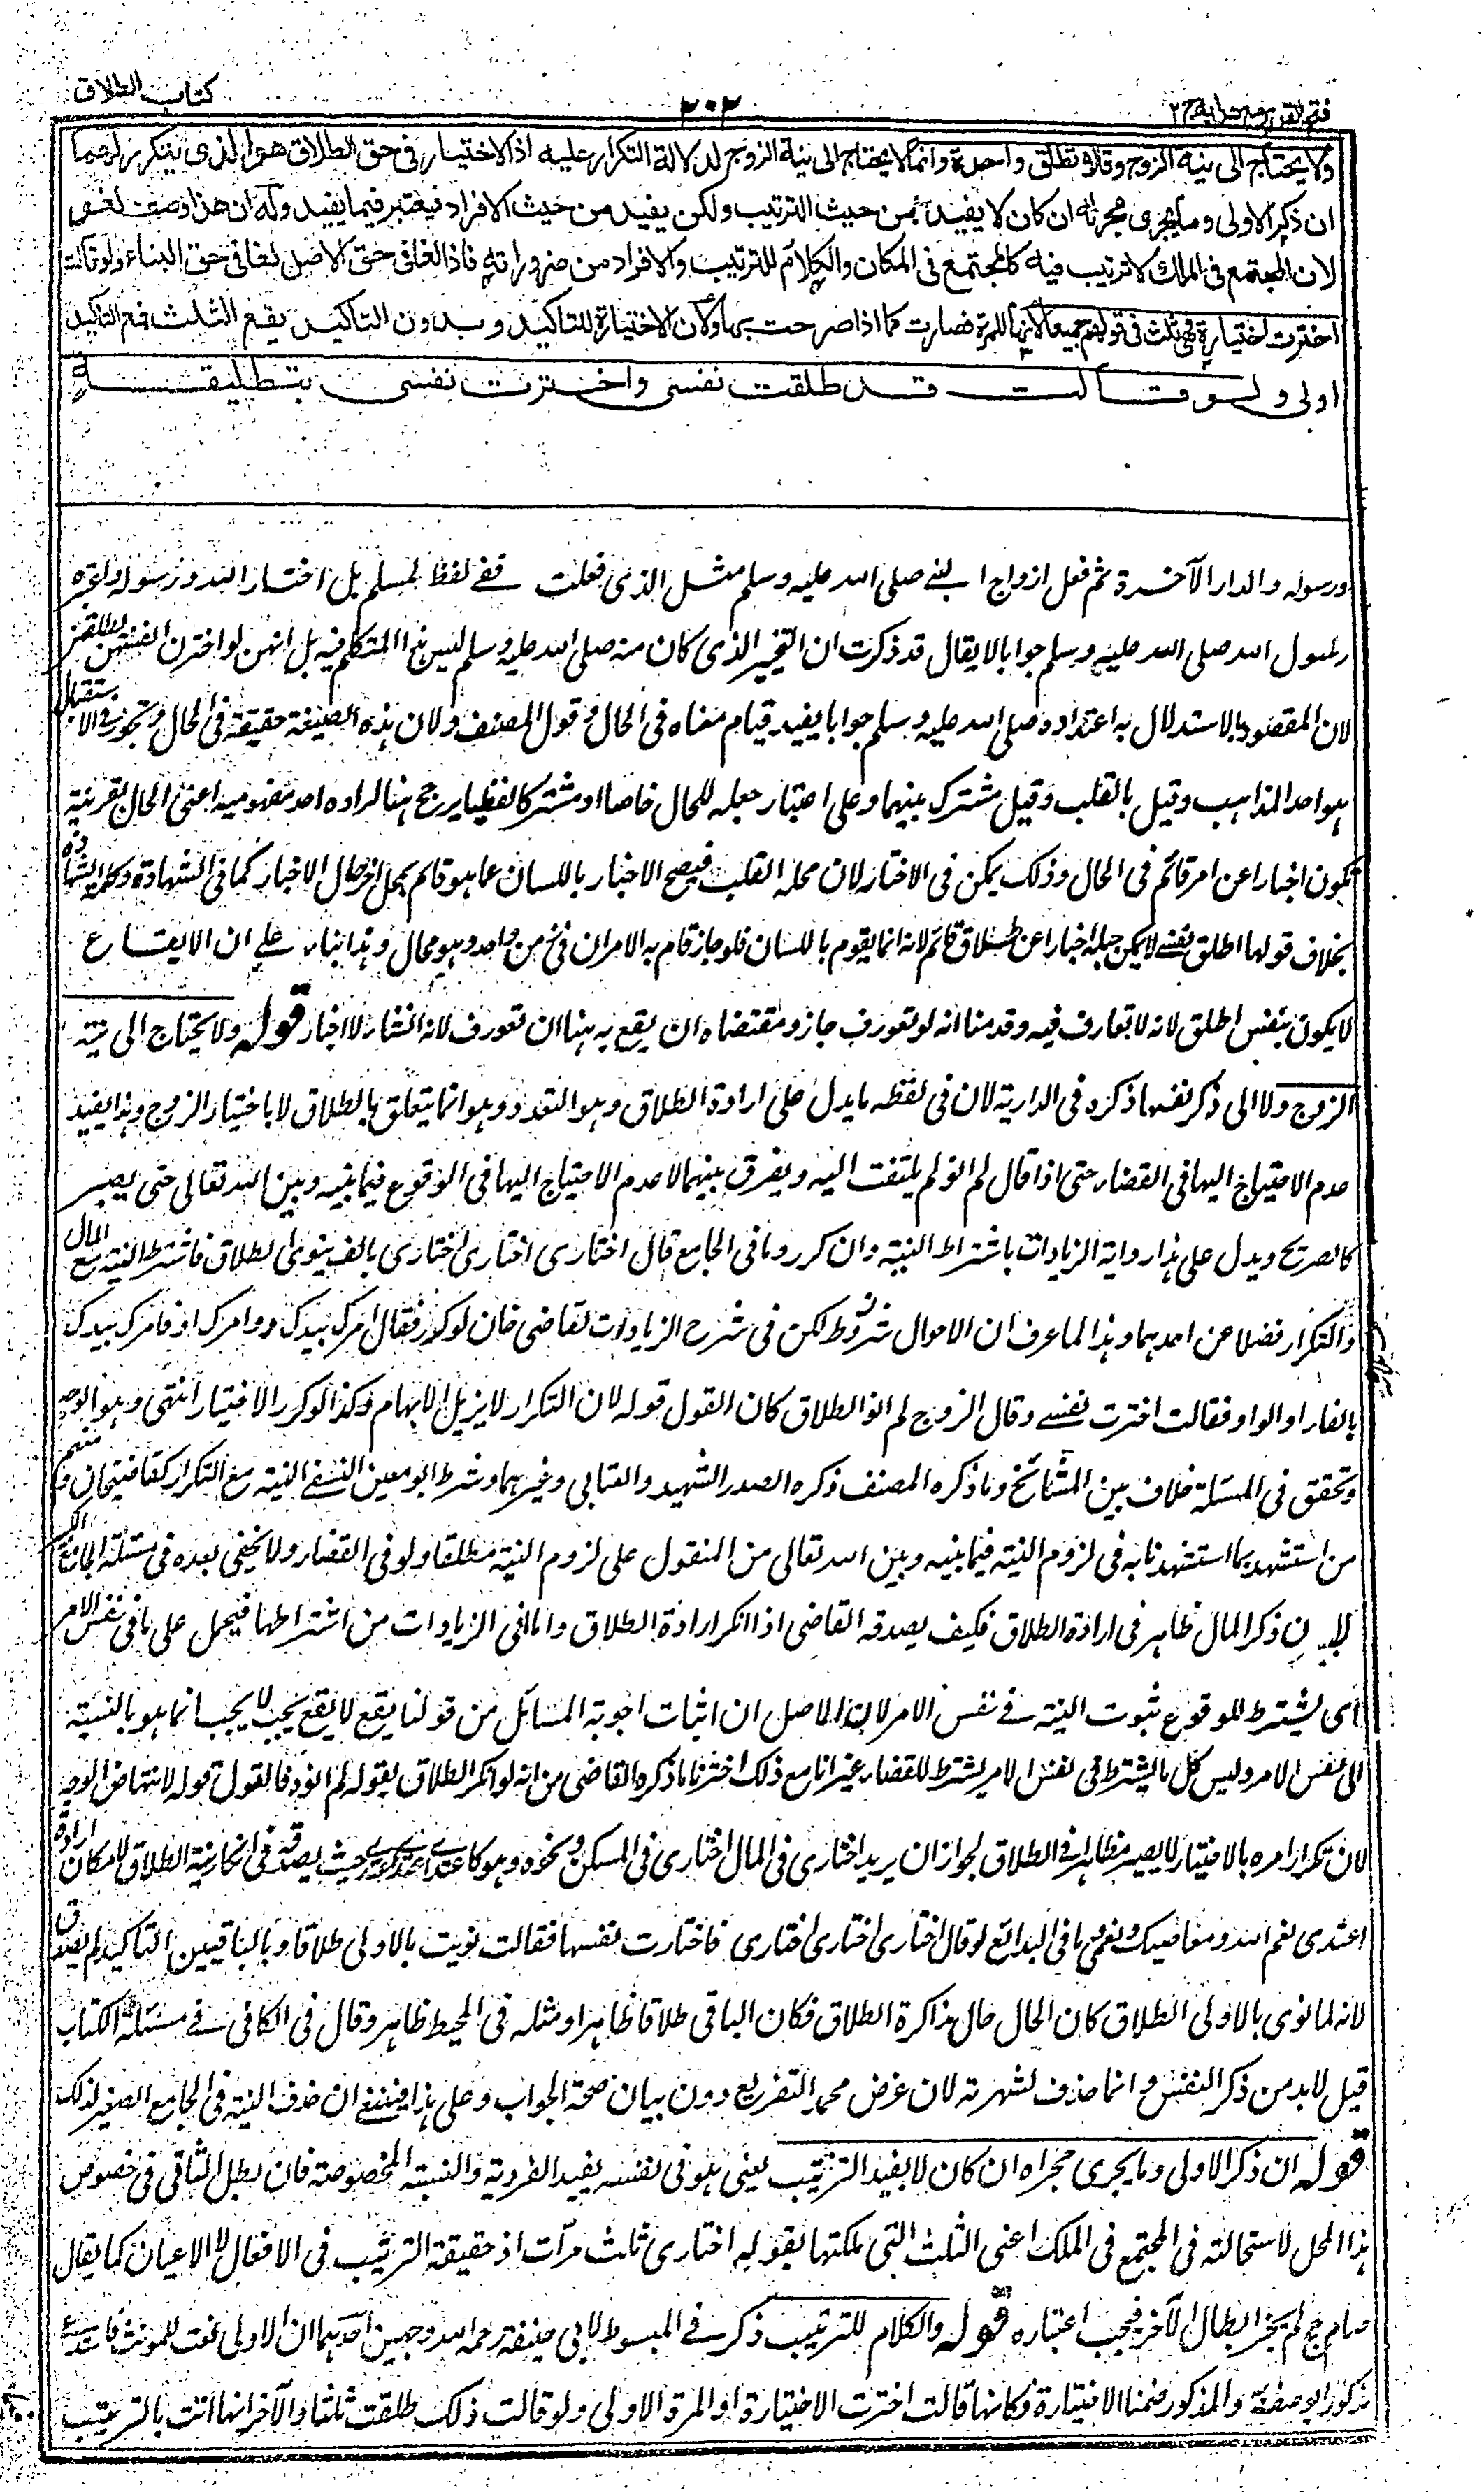 فتح القدير مع هداية ج ٢
٢٠٢
كتاب الطلاق
ولا يحتاج الى نية الزوج وقالا تطلق واحدة وانما لا يحتاج الى نية الزوج لدلالة التكرار عليه اذ الاختيار فى حق الطلاق هو الذى يتكرر لهما
ان ذكر الاولى وما يجرى مجراه ان كان لا يفيد من حيث الترتيب ولكن يفيد من حيث الافراد فيعتبر فيما يفيد وله ان هذا وصف لغو
لان المجتمع فى الملك لا ترتيب فيه كالمجتمع فى المكان والكلام للترتيب والافراد من ضروراته فاذا لغا فى حق الاصل لغا فى حق البناء ولو قالت
اخترت اختيارة فهى ثلث فى قولهم جميعا لانها للمرة فصارت كما اذا صرحت بها ولان الاختيارة للتاكيد وبدون التاكيد يقع الثلث فمع التاكيد
اولى ولو قالت قد طلقت نفسى واخترت نفسى بتطليقة
ورسوله والدار الآخرة ثم فعل ازواج النبى صلى الله عليه وسلم مثل الذى فعلت وفى لفظ لمسلم بل اختار الله ورسوله واعتبره
رسول الله صلى الله عليه وسلم جوابا لا يقال قد ذكرت ان التخيير الذى كان منه صلى الله عليه وسلم ليس هذا المتكلم فيه بل انهن لو اخترن انفسهن يطلقهن
لان المقصود بالاستدلال به اعتداده صلى الله عليه وسلم جوابا يفيد قيام معناه فى الحال وقول المصنف ولان هذه الصيغة حقيقة فى الحال وتجوز فى الاستقبال
هو احد المذاهب وقيل بالقلب وقيل مشترك بينهما وعلى اعتبار جعله للحال خاصا او مشتركا لفظيا يرجح هنا ارادة احد مفهوميه اعنى الحال بقرينة
تكون اخبارا عن امر قائم فى الحال وذلك يمكن فى الاختيار لان محله القلب فيصح الاخبار باللسان عما هو قائم بمحل آخر حال الاخبار كما فى الشهادة وكلمة الشهادة
بخلاف قولها اطلق نفسى لا يمكن جعله اخبارا عن طلاق قائم لانه انما يقوم باللسان فلو جاز قام به الامران فى زمن واحد وهو محال وهذا بناء على ان الايقاع
لا يكون بنفس اطلق لانه لا تعارف فيه وقدمنا انه لو تعورف جاز ومقتضاه ان يقع به هنا ان تعورف لانه انشاء لا اخبار قوله ولا يحتاج الى نية
الزوج ولا الى ذكر نفسها ذكره فى الدراية لان فى لفظه ما يدل على ارادة الطلاق وهو التعدد وهو انما يتعلق بالطلاق لا باختيار الزوج وهذا يفيد
عدم الاحتياج اليها فى القضاء حتى اذا قال لم انو لم يلتفت اليه ويفرق بينهما لا عدم الاحتياج اليها فى الوقوع فيما بينه وبين الله تعالى حتى يصير
كالصريح ويدل على هذا رواية الزيادات باشتراط النية وان كرر وما فى الجامع قال اختارى اختارى اختارى بالف ينوى الطلاق فاشترط النية مع المال
والتكرار فضلا عن احدهما وهذا لما عرف ان الاحوال شروط لكن فى شرح الزيادات لقاضى خان لو كرر فقال امرك بيدك وامرك او فامرك بيدك
بالفاء او الواو فقالت اخترت نفسى وقال الزوج لم انو الطلاق كان القول قوله لان التكرار لا يزيل الابهام وكذا لو كرر الاختيار انتهى وهو الوجه
وتحقق فى المسئلة خلاف بين المشائخ وما ذكره المصنف ذكره الصدر الشهيد والعتابى وغيرهما وشرط ابو معين النسفى النية مع التكرار كقاضيخان ومنهم
من استشهد بما استشهدنا به فى لزوم النية فيما بينه وبين الله تعالى من المنقول على لزوم النية مطلقا ولو فى القضاء ولا يخفى بعده فى مسئلة الجامع الكبير
لان ذكر المال ظاهر فى ارادة الطلاق فكيف يصدقه القاضى اذا انكر ارادة الطلاق واما فى الزيادات من اشتراطها فيحمل على ما فى نفس الامر
اى يشترط للوقوع ثبوت النية فى نفس الامر لان الاصل ان اثبات اجوبة المسائل من قولنا يقع لا يقع يجب لا يجب انما هو بالنسبة
الى نفس الامر وليس كل ما يشترط فى نفس الامر يشترط للقضاء غير انا مع ذلك اخترنا ما ذكره القاضى من انه لو انكر الطلاق بقوله لم انوه فالقول قوله لانتهاض الوجه
لان تكرار امره بالاختيار لا يصير ظاهرا فى الطلاق لجواز ان يريد اختارى فى المال اختارى فى المسكن ونحوه وهو كاعتدى حيث يصدقه فى انكار نية الطلاق لامكان ارادة
اعتدى نعم الله ومعاصيك ونعمى ما فى البدائع لو قال اختارى اختارى اختارى فاختارت نفسها فقالت نويت بالاولى طلاقا وبالباقيين التاكيد لم يصدق
لانه لما نوى بالاولى الطلاق كان الحال حال مذاكرة الطلاق فكان الباقى طلاقا ظاهرا ومثله فى المحيط ظاهر وقال فى الكافى فى مسئلة الكتاب
قيل لا بد من ذكر النفس وانما حذف لشهرته لان غرض محمد التفريع دون بيان صحة الجواب وعلى هذا فينبغى ان حذف النية فى الجامع الصغير لذلك
قوله ان ذكر الاولى وما يجرى مجراه ان كان لا يفيد الترتيب يعنى هو فى نفسه يفيد الفردية والنسبة المخصوصة فان بطل الثانى فى خصوص
هذا المحل لاستحالته فى المجتمع فى الملك اعنى الثلث التى ملكتها بقوله اختارى ثلث مرات اذ حقيقة الترتيب فى الافعال لا الاعيان كما يقال
صام حج لم يجز ابطال الآخر فيجب اعتباره قوله والكلام للترتيب ذكر فى المبسوط لابى حنيفة رحمه الله وجهين احدهما ان الاولى نعت لمؤنث فاستدعى
مذكورا يوصفه والمذكور ضمنا الاختيارة فكانها قالت اخترت الاختيارة او المرة الاولى ولو قالت ذلك طلقت ثلثا والآخر انها اتت بالترتيب